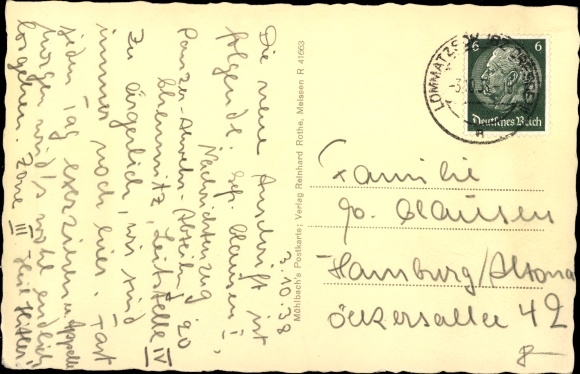 3.10.38
Die neue Anschrift ist
folgende: Gefr. Clausen I,
Nachrichtenzug
Panzer-Abwehr-Abteilung 20
Chemnitz, Leitstelle IV
Zu ärgerlich, wir sind
immer noch hier. Fast
jeden Tag exerzieren u. Appelle
Morgen wird's wohl endlich
losgehen. Zone III. Heil Hitler!
Mühlbach's Postkarte; Verlag Reinhard Rothe, Meissen R 41663
LOMMATZSCH
6 6
Deutsches Reich
Familie
Jo. Clausen
Hamburg/Altona
Öckersallee 42